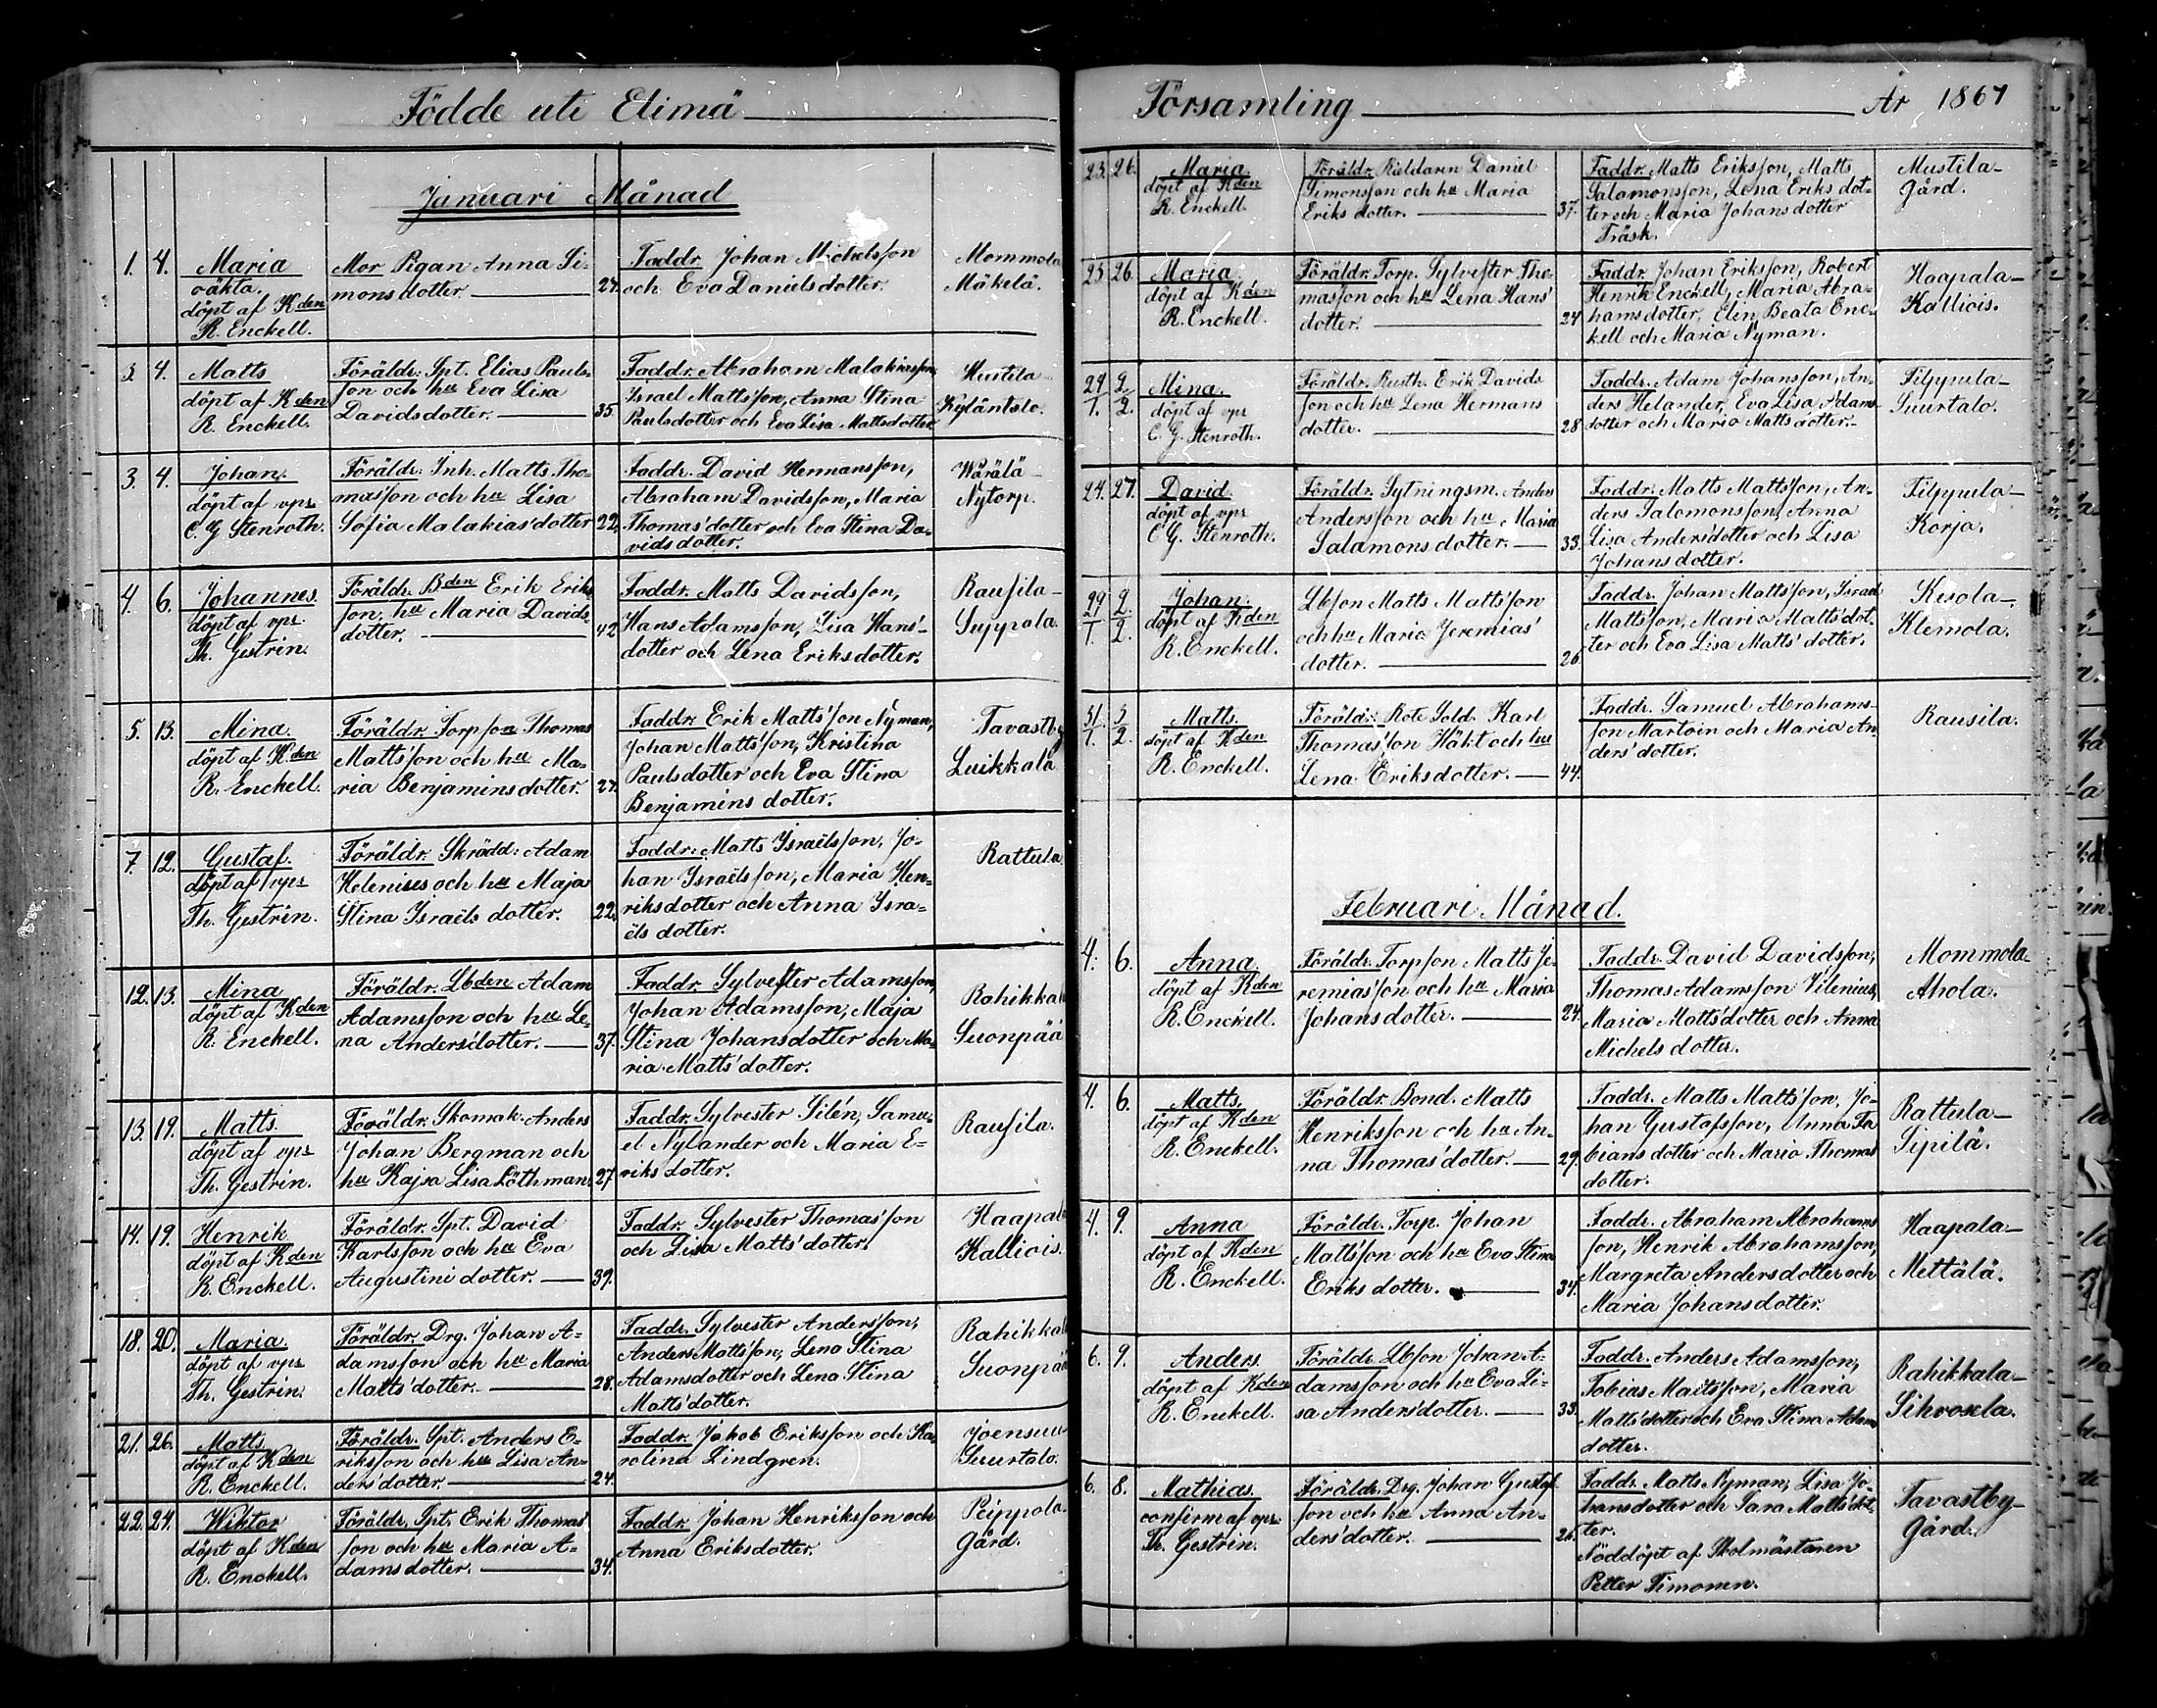 Födde uti Elimä
Januari Månad
1. 4. Maria
oäkta.
döpt af Kden
R. Enckell.
Mor Pigan Anna Si-
mons dotter. 27.
Faddr. Johan Michelsson
och Eva Daniels dotter.
Mommola
Mäkelä.
3. 4. Matts
döpt af Kden
R. Enckell.
Föräldr. Spt. Elias Pauls-
son och hu Eva Lisa
Davidsdotter. 35.
Faddr. Abraham Malakiasson,
Israel Mattsson, Anna Stina
Paulsdotter och Eva Lisa Mattsdotter
Mustila-
Kyläntalo.
3. 4. Johan.
döpt af vpr
C. G. Stenroth.
Föräldr. Inh. Matts Tho-
masson och hu Lisa
Sofia Malakias'dotter 22.
Faddr. David Hermansson,
Abraham Davidsson, Maria
Thomas'dotter och Eva Stina Da-
vids dotter.
Wärälä-
Nytorp.
4. 6. Johannes.
döpt af vpr.
Th. Gestrin.
Föräldr. Bden Erik Eriks
son, hu Maria Davids
dotter. 42
Faddr. Matts Davidsson,
Hans Adamsson, Lisa Hans'-
dotter och Lena Eriksdotter.
Rausila-
Seppola.
5. 13. Mina.
döpt af Kden
R. Enckell.
Föräldr. Torpson Thomas
Matts'son och hu Ma-
ria Benjamins dotter. 27.
Faddr. Erik Matts'son Nyman,
Johan Matts'son, Kristina
Paulsdotter och Eva Stina
Benjamins dotter.
Tavastby
Luikkala
7. 12. Gustaf.
döpt af vpr
Th. Gestrin.
Föräldr. Skrädd. Adam
Helenius och hu Maja
Stina Israëls dotter. 22.
Faddr. Matts Israëlsson, Jo-
han Israëlsson, Maria Hen-
riksdotter och Anna Isra-
ëls dotter.
Rattula.
12. 13. Mina
döpt af Kden
R. Enckell.
Föräldr. Lbden Adam
Adamsson och hu Le-
na Anders'dotter. 37.
Faddr. Sylvester Adamsson,
Johan Adamsson, Maja
Stina Johansdotter och Ma-
ria Matts'dotter.
Rahikkala
Suonpää
13. 19. Matts.
döpt af vpr
Th. Gestrin.
Föräldr. Skomak. Anders
Johan Bergman och
hu Kajsa Lisa Löthman 27
Faddr. Sylvester Silén, Samu-
el Nylander och Maria E-
riks dotter.
Rausila.
14. 19. Henrik
döpt af Kden
R. Enckell.
Föräldr. Spt. David
Karlsson och hu Eva
Augustini dotter. 39.
Faddr. Sylvester Thomas'son
och Lisa Matts'dotter.
Haapala
Kalliois.
18. 20. Maria.
döpt af vpr
Th. Gestrin.
Föräldr. Drg. Johan A-
damsson och hu Maria
Matts'dotter. 28.
Faddr. Sylvester Andersson,
Anders Mattsson, Lena Stina
Adamsdotter och Lena Stina
Matts'dotter.
Rahikkala
Suonpää
21. 26. Matts.
döpt af Kden
R. Enckell.
Föräldr. Spt. Anders E-
riksson och hu Lisa An-
ders'dotter. 24.
Faddr. Jakob Eriksson och Ka-
rolina Lindgren.
Joensuu-
Suurtalo.
22. 24. Wiktor
döpt af Kden
R. Enckell.
Föräldr. Spt. Erik Thomas'
son och hu Maria A-
dams dotter. 34.
Faddr. Johan Henriksson och
Anna Eriksdotter.
Peippola-
Gård.
Församling År 1867
23. 26. Maria.
döpt af Kden
R. Enckell.
Föräldr. Rättaren Daniel
Simonsson och hu Maria
Eriks dotter. 37.
Faddr. Matts Eriksson, Matts
Salamonsson, Lena Eriks dot-
ter och Maria Johansdotter
Träsk.
Mustila-
Gård.
25 26. Maria.
döpt af Kden
R. Enckell.
Föräldr. Torp. Sylvester Tho-
masson och hu Lena Hans'
dotter. 24
Faddr. Johan Eriksson, Robert
Henrik Enckell, Maria Abra-
hamsdotter, Elin Beata Enc-
kell och Maria Nyman.
Haapala-
Kalliois.
29/1. 2/2. Mina.
döpt af vpr
C. G. Stenroth.
Föräldr. Rusth. Erik Davids
son och hu Lena Hermans
dotter. 28
Faddr. Adam Johansson, An-
ders Helander, Eva Lisa Adams
dotter och Maria Matts dotter.
Filppula-
Suurtalo.
24. 27. David.
döpt af vpr
C. G. Stenroth.
Föräldr. Sytningsm. Anders
Andersson och hu Maria
Salamons dotter. 33.
Faddr. Matts Mattsson, An-
ders Salomonsson, Anna
Lisa Anders'dotter och Lisa
Johansdotter.
Filppula-
Korja.
29/1. 2/2. Johan.
döpt af Kden
R. Enckell.
Lbson Matts Matts'son
och hu Maria Jeremias'
dotter. 26.
Faddr. Johan Matts'son, Israel
Matts'son, Maria Matts'dot-
ter och Eva Lisa Matts' dotter.
Kesola-
Klemola.
31/1. 3/2. Matts.
döpt af Kden
R. Enckell.
Föräldr. Rote Sold. Karl
Thomas'son Häkt och hu
Lena Eriksdotter. 44.
Faddr. Samuel Abrahams-
son Martoin och Maria An-
ders'dotter.
Rausila.
Februari Månad.
4. 6. Anna.
döpt af Kden
R. Enckell.
Föräldr. Torpson Matts Je-
remias'son och hu Maria
Johansdotter. 24.
Faddr. David Davidsson,
Thomas Adamsson Vilenius,
Maria Matts'dotter och Anna
Michels dotter.
Mommola-
Ahola.
4. 6. Matts.
döpt af Kden
R. Enckell.
Föräldr. Bond. Matts
Henriksson och hu An-
na Thomas'dotter. 29.
Faddr. Matts Matts'son, Jo-
han Gustafsson, Anna Fa
bians dotter och Maria Thomas
dotter.
Rattula-
Sipilä.
4. 9. Anna
döpt af Kden
R. Enckell.
Föräldr. Torp. Johan
Matts'son och hu Eva Stina
Eriks dotter. 34.
Faddr. Abraham Abrahams
son, Henrik Abrahamsson,
Margreta Andersdotter och
Maria Johansdotter.
Haapala-
Mettälä.
6. 9. Anders.
döpt af Kden
R. Enckell.
Föräldr. Lbson Johan A-
damsson och hu Eva Li-
sa Anders'dotter. 33.
Faddr. Anders Adamsson,
Tobias Matts'son, Maria
Matts'dotter och Eva Stina Adams
dotter.
Rahikkala-
Sihvosela.
6. 8. Mathias.
confirm af vpr.
Th. Gestrin.
Föräldr. Drg. Johan Gustaf
son och hu Anna An-
ders'dotter. 26.
Faddr. Matts Nyman, Lisa Jo-
hansdotter och Sara Matts'dot-
ter.
Nöddöpt af Skolmästaren
Petter Timonen.
Tavastby-
Gård.